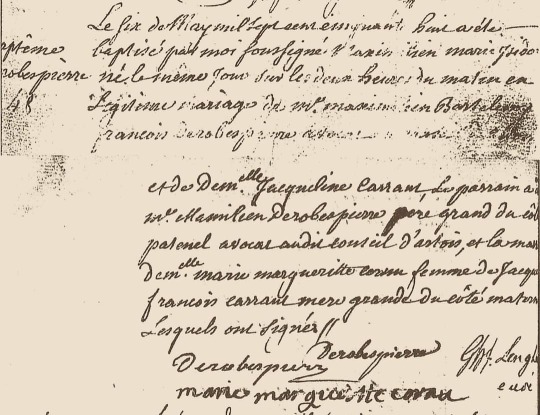 Le six de May mil sept cent cinquante huit a été
baptême
baptisé par moi soussigné Maximilien marie Isido
robespierre né le même jour sur les deux heures du matin en
48
Légitime mariage de mr. maximilien Barthelemy
francois Derobespierre avocat
et de Demlle Jacqueline Carraut, Le parrain a
mr. Maximilien Derobespierre pere grand du cô
paternel avocat audit conseil d'artois, et la mar
demlle. marie margueritte cornu femme de Jacqu
francois carraut mere grande du côté matern
Lesquels ont signés //
Derobespierre Derobespierre
marie margueritte cornu